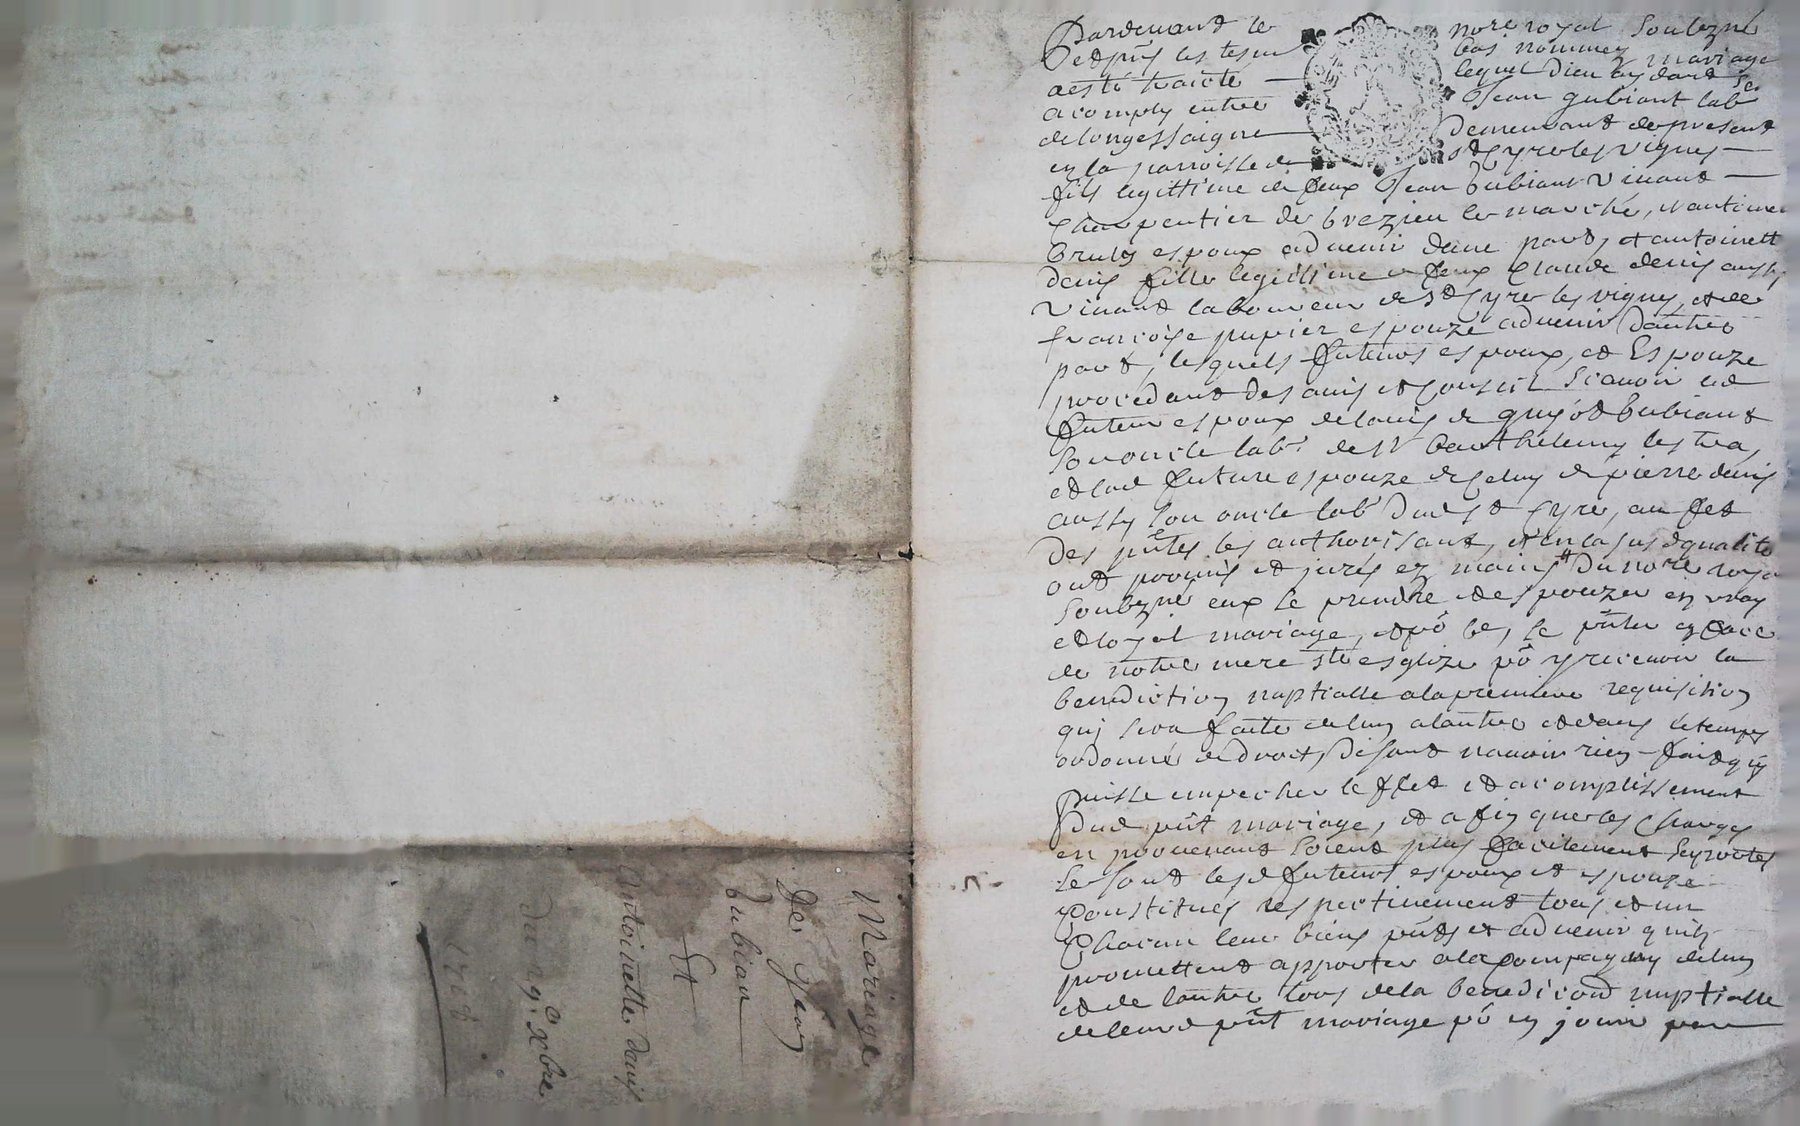 Pardevant le nore royal soubzné
et dpnts les tesm bas nommez mariage
a esté traicté lequel dieu aydant se
acomply entre Jean gubiant labr
de longessaigne demeurant de present
en la parroisse de St Cyre les vignes
fils legittime de feux Jean bubiant vivant
charpentier de brezieu le marché, et antoinette
bruly espoux advenir dune part, et antoinette
denis fille legittime de feux Claude denis aussy
vivant laboureur de St Cyre les vignes, et de
francoise papier espouze advenir dautre
part, lesquels futeurs espoux, et Espouze
procedant des avis et conseil scavoir led
futeur espoux de lavis de guyot bubiant
son oncle labr de St barthelemy lestra,
et lad future espouze de celuy de pierre denis
aussy son oncle labr dud St Cyre, au fet
des pntes les authorisant, et en lasusd qualite
ont promis et jures ez mains du nore royal
soubzne eux se prendre et espouzer en vray
et loyal mariage, et pr ce, se pnter en face
de notre mere ste esglize pr y recevoir la
benediction nuptialle a la premiere requisition
qui sera faite de luy a lautre et dans le temps
ordonné de droit, disant navoir rien fait qui
puisse empecher leffet et acomplissement
dud pnt mariage, et a fin que les charges
en provenant soient plus facilement suportes
se sont lesd futeurs espoux et espouze
constitues respectivement tous et un
chacun leur biens pnts et advenir quils
promettent apporter a la compagny de luy
et de lautre lors de la benediction nuptialle
de leurd pnt mariage pr en jouir par
Mariage
de Jean
bubian
Et
Antoinette danis
du 19e xbre
1708